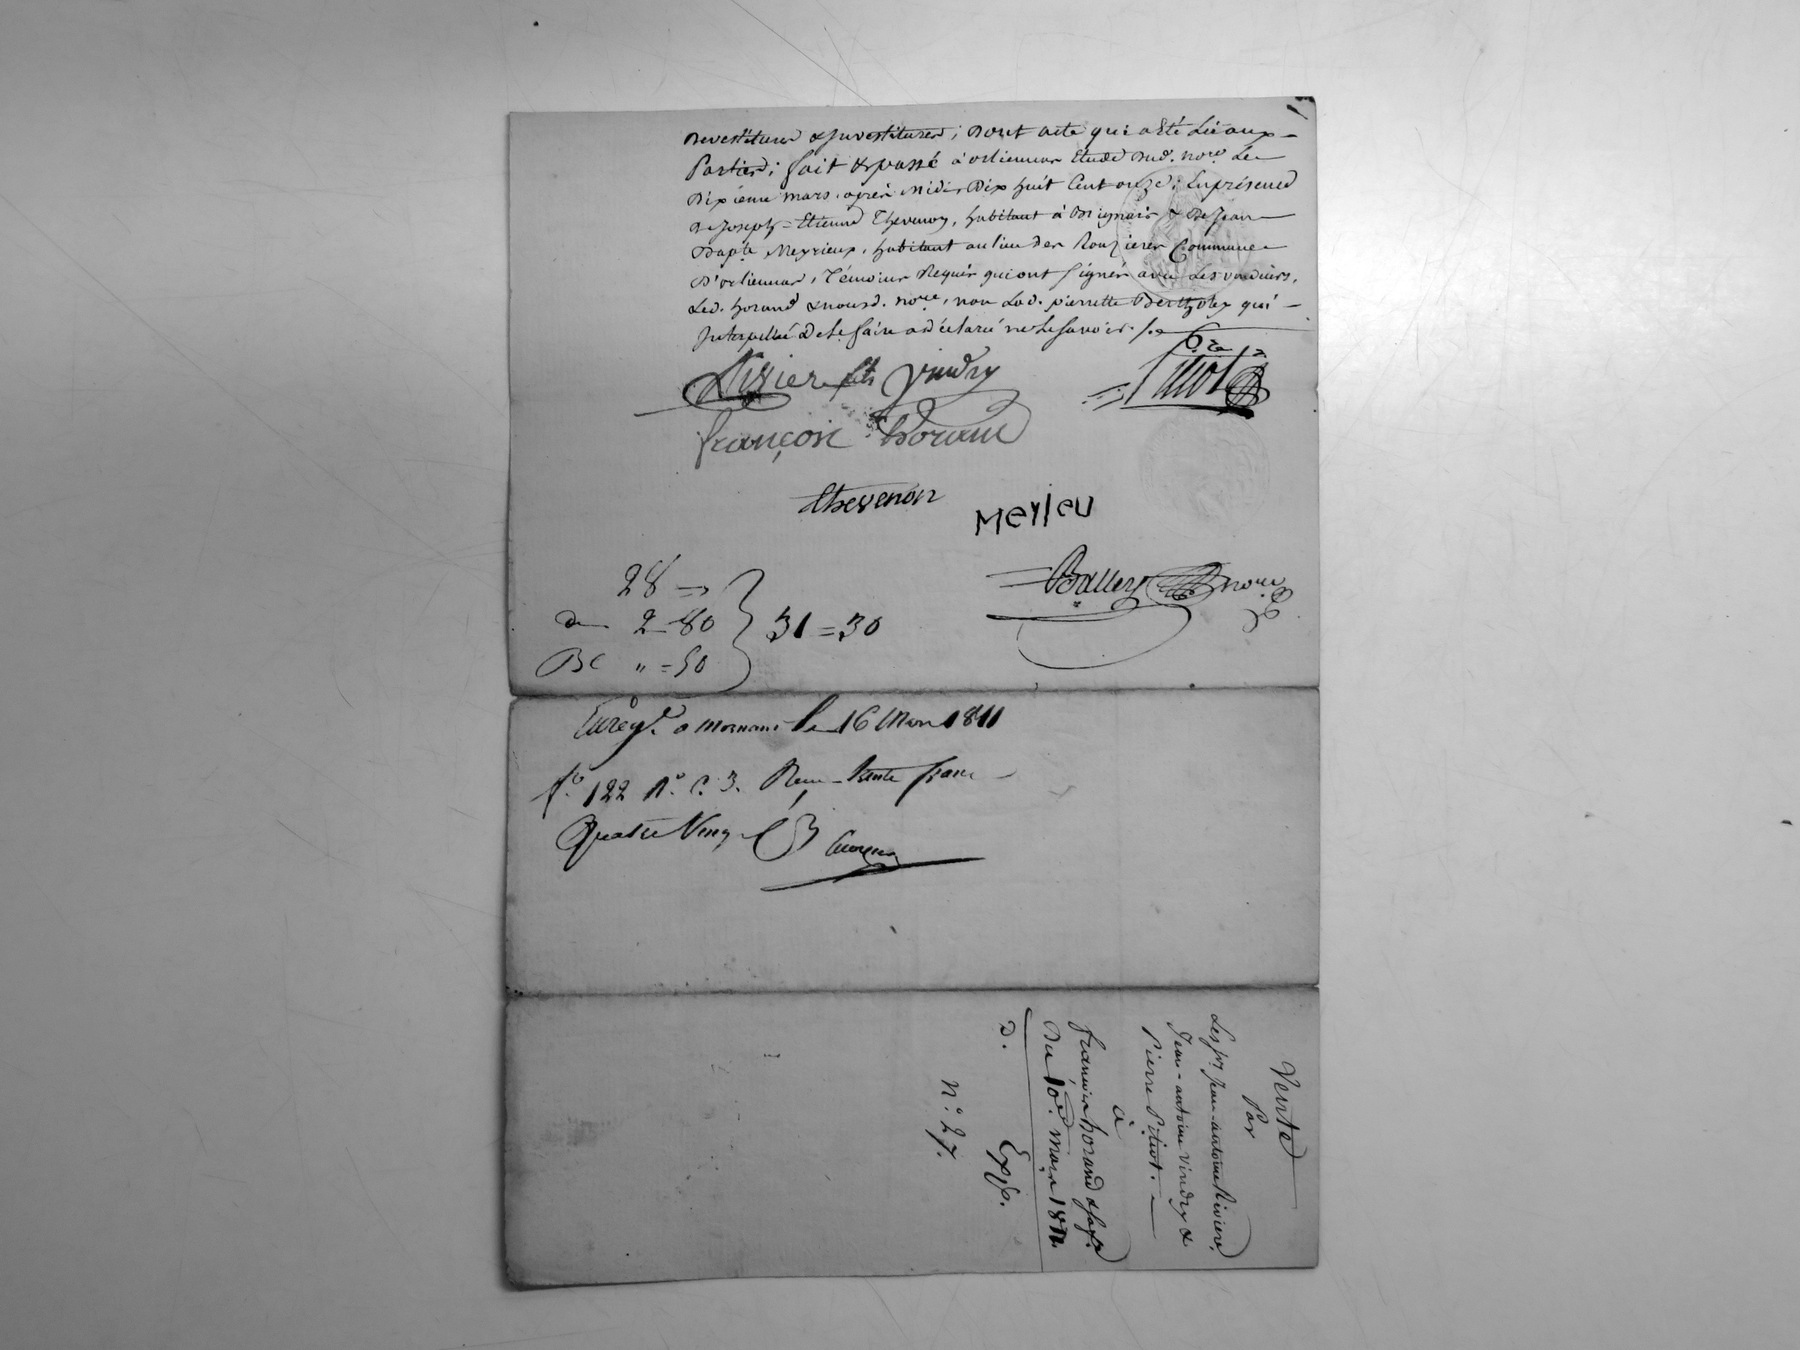 Devestitures & Investitures; Dont acte qui a été Lû aux
Parties; fait & passé à orlienas Etude dud. no.re Le
Dixième mars, après midi, Dix huit Cent onze; En présence
De Joseph=Etienne Thevenon, habitant à Brignais & De Jean
Bap.te Meyrieux, habitant au lieu des Rouzieres Commune
D'orlienas, Témoins Requis qui ont signés avec Les vendeurs,
Led. horand & nousd. no.re, non Lad. pierrette Bertholey qui
Interpellée De Le faire a déclaré ne Le savoir ./.
Rivier vindry
Pitiot
françois horand
thevenon
Meyieu
Balley no.re
28 =
2-80
31 = 30
" = 50
Enreg.é a mornant le 16 Mars 1811
f.o 122 R.o C. 3. Reçu trente francs
Quatre Vingt C
Vente
Par
Les s.rs jean-antoine Riviere,
Jean-antoine Vindry &
Pierre Pitiot.
à
francois horand & sa f.e
Du 10.e mars 1811.
D. Exp.
n.o 27.